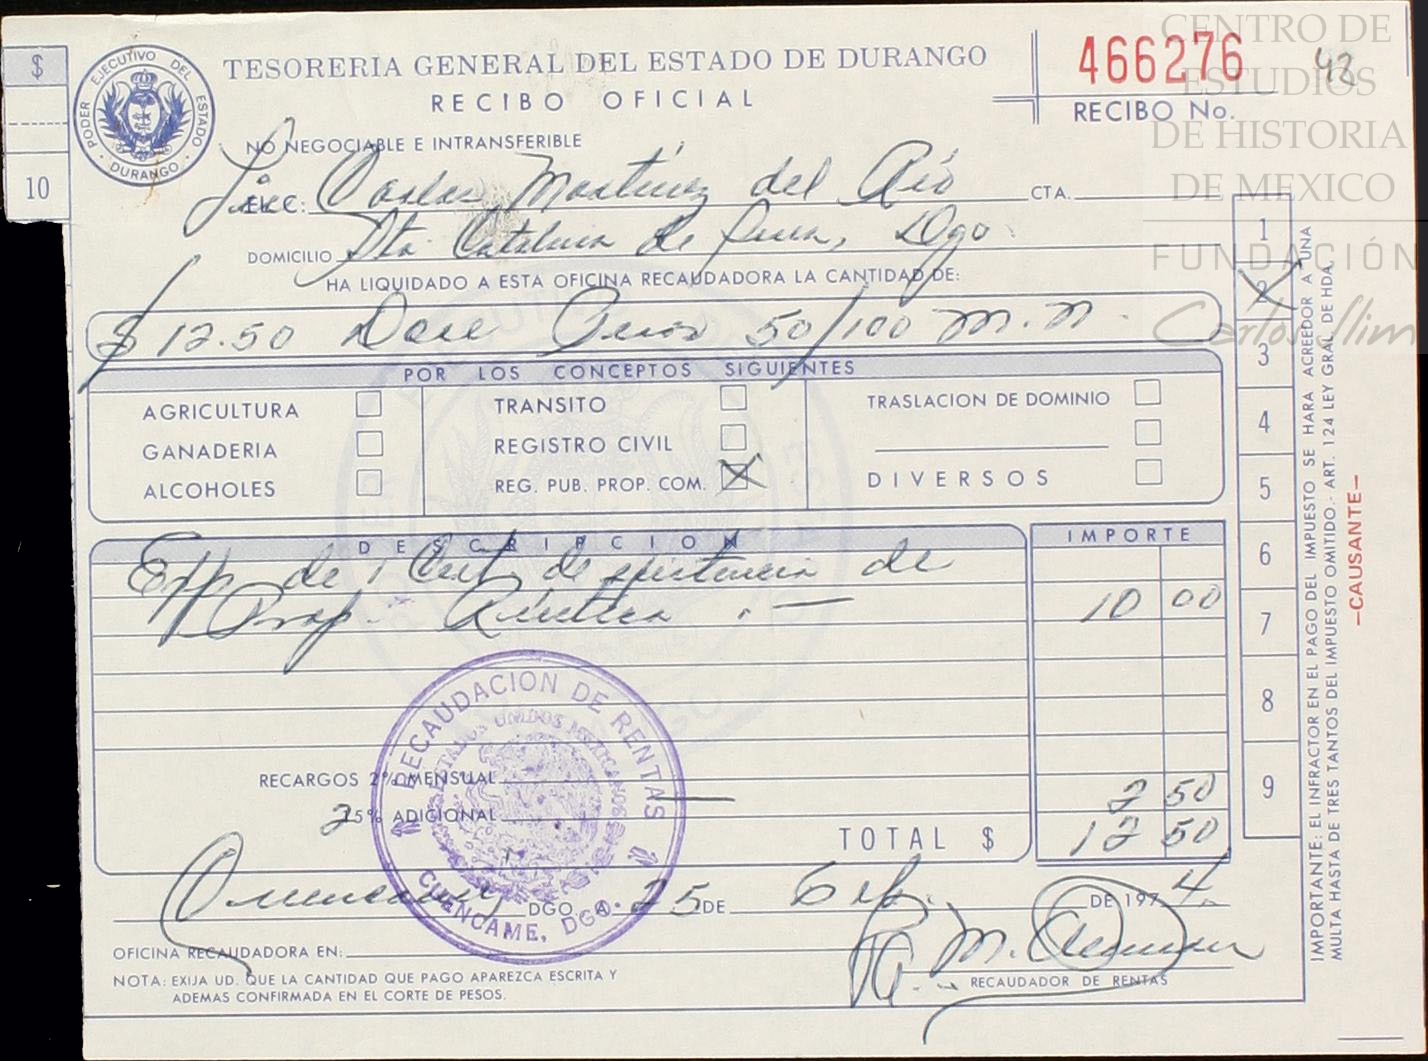 CENTRO DE
ESTUDIOS
DE HISTORIA
DE MEXICO
FUNDACIÓN
Carlos Slim
$
10
PODER EJECUTIVO DEL ESTADO
DURANGO
TESORERIA GENERAL DEL ESTADO DE DURANGO
RECIBO OFICIAL
466276
43
RECIBO No.
NO NEGOCIABLE E INTRANSFERIBLE
Lic. Carlos Martínez del Río CTA.
DOMICILIO Sta. Catalina de Dgo.
HA LIQUIDADO A ESTA OFICINA RECAUDADORA LA CANTIDAD DE:
$ 12.50 Doce Pesos 50/100 M.N.
POR LOS CONCEPTOS SIGUIENTES
AGRICULTURA TRANSITO TRASLACION DE DOMINIO
GANADERIA REGISTRO CIVIL
ALCOHOLES REG. PUB. PROP. COM. DIVERSOS
DESCRIPCION IMPORTE
Exp. de 1 Cert. de de
Prop. Rústica. 10 00
RECARGOS 2% MENSUAL
25% ADICIONAL 2 50
TOTAL $ 12 50
RECAUDACION DE RENTAS
ESTADOS UNIDOS MEXICANOS
CUENCAME, DGO.
DGO. A 25 DE DE 1974.
OFICINA RECAUDADORA EN:
RECAUDADOR DE RENTAS
NOTA: EXIJA UD. QUE LA CANTIDAD QUE PAGO APAREZCA ESCRITA Y
ADEMAS CONFIRMADA EN EL CORTE DE PESOS.
1
2
3
4
5
6
7
8
9
IMPORTANTE: EL INFRACTOR EN EL PAGO DEL IMPUESTO SE HARA ACREEDOR A UNA
MULTA HASTA DE TRES TANTOS DEL IMPUESTO OMITIDO.- ART. 124 LEY GRAL. DE HDA.
-CAUSANTE-